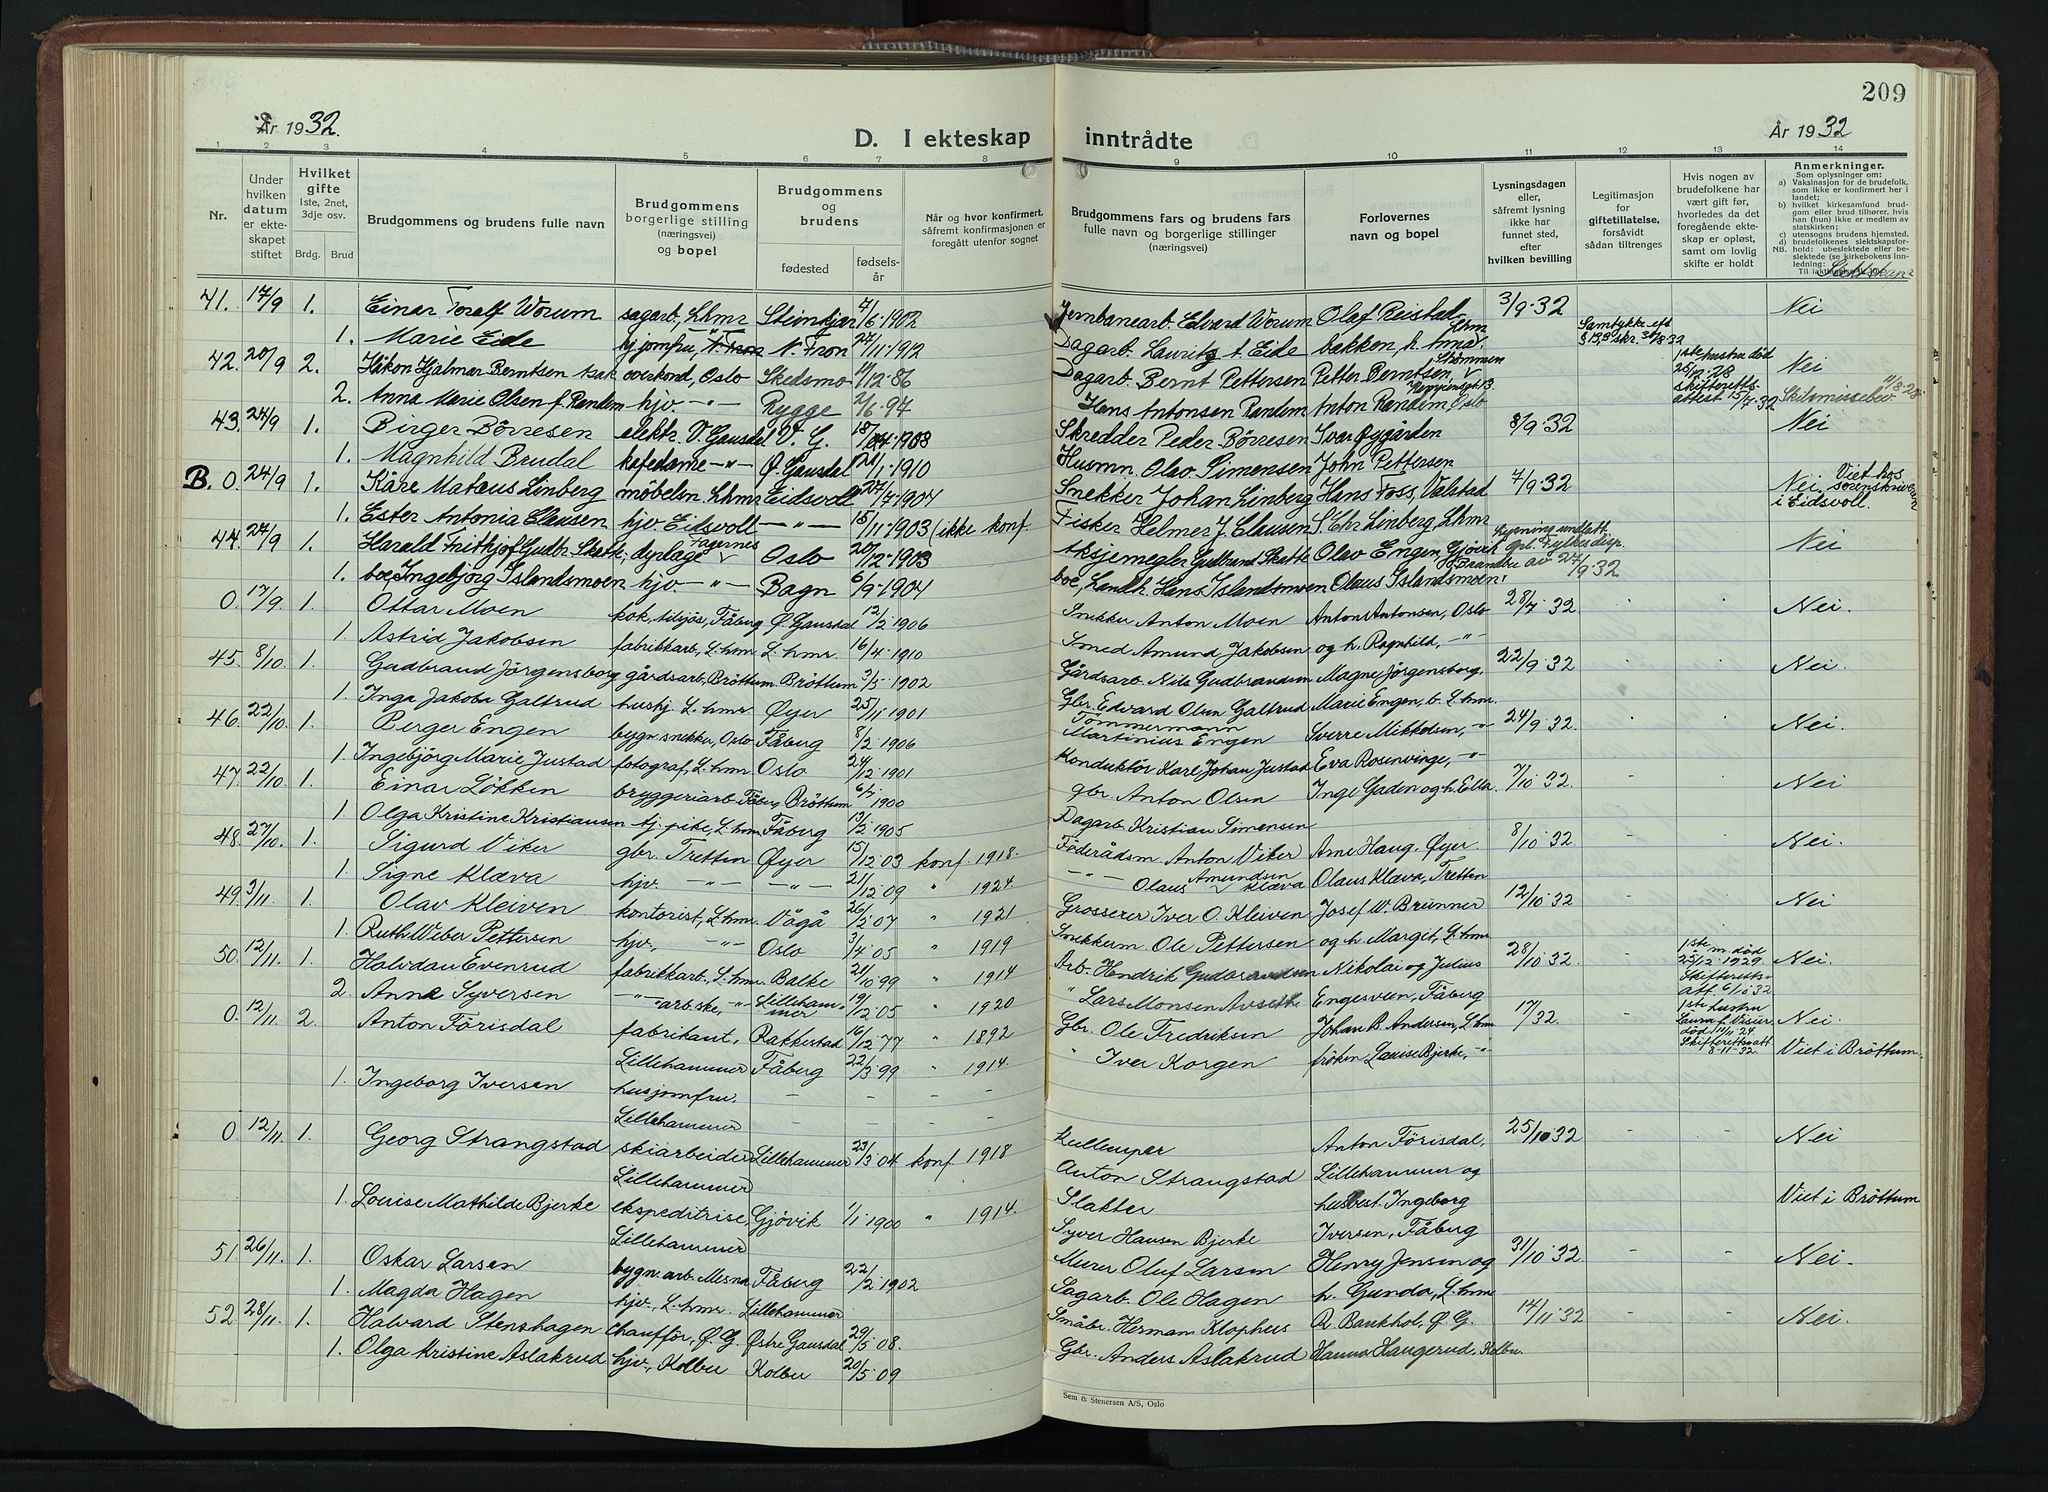 209
År 1932.
D. I ekteskap inntrådte
År 1932
1 2 3 4 5 6 7 8 9 10 11 12 13 14
Nr.
Under hvilken datum er ekteskapet stiftet
Hvilket gifte 1ste, 2net, 3dje osv.
Brdg. Brud
Brudgommens og brudens fulle navn
Brudgommens og brudens borgerlige stilling (næringsvei) og bopel
Brudgommens og brudens
fødested
fødselsår
Når og hvor konfirmert, såfremt konfirmasjonen er foregått utenfor sognet
Brudgommens fars og brudens fars fulle navn og borgerlige stillinger (næringsvei)
Forlovernes navn og bopel
Lysningsdagen eller, såfremt lysning ikke har funnet sted, efter hvilken bevilling
Legitimasjon for giftetillatelse, forsåvidt sådan tiltrenges
Hvis nogen av brudefolkene har vært gift før, hvorledes da det foregående ekteskap er opløst, samt om lovlig skifte er holdt
Anmerkninger.
Som oplysning om:
a) Vaksinasjon for de brudefolk, som ikke er konfirmert her i landet;
b) hvilket kirkesamfund brudgom eller brud tilhører, hvis han (hun) ikke er medlem av statskirken;
c) utensogns brudens hjemsted.
d) brudefolkenes slektskapsforhold: ubeslektede eller beslektede (se kirkebokens innledning:
41. 17/9 1. Einar Toralf Worum sagarb., Lhmr Steinkjær 7/6 1902 Jernbanearb. Edvard Worum Olaf Reistad- 3/9 32 Nei
1. Marie Eide hj. jomfru, N. Fron 27/11 1912 Dagarb. Lauritz A. Eide bakken, h. Anna. Lhm Samtykke eft
42. 20/9 2. Håkon Hjalmar Berntsen overkond, Oslo Skedsmo 11/12 86 Dagarb. Bernt Pettersen Petter Berntsen, Strømmen 1ste hustru død 25/12 28 Nei
2. Anna Marie Olsen f. Randem hjv. -"- Rygge 2/6 94 Hans Antonsen Randem Anton Randem, Oslo skifteretts attest 15/7 32 Skilsmissebev. 11/8 28
43. 24/9 1. Birger Börresen elektr. V. Gausdal V. G. 18/ 1908 Skredder Peder Börresen Ivar Øygården 8/9 32 Nei
1. Magnhild Brudal kafedame -"- Ø. Gausdal 1910 Husmn. Olav Simensen John Pettersen
B. 0. 24/9 1. Kåre Mataus Linberg möbelsn. Lhmr Eidsvoll 27/7 1904 Snekker Johan Linberg Hans Foss, Valstad 7/9 32 Nei, Viet hos sorenskriveren i Eidsvoll.
1. Ester Antonia Clausen hjv Eidsvoll -"- 15/11 1903 (ikke konf. Fisker Helmer J. Clausen S. Chr. Linberg, Lhmr
44. 27/9 1. Harald Frithjof Gudbr. Skatte, dyrlæge Fagernes Oslo 20/12 1903 Aksjemegler Gudbrand Skatte Olav Engen, Gjövik Lysning undlatt. Fylkesdisp. av 27/9 32 Nei
1. Ingebjörg Islandsmoen hjv. -"- Bagn 6/9 1904 Landh. Hans Islandsmoen Olaus Islandsmoen, Brandbu
0 17/9 1. Ottar Moen kok, tilsjøs, Fåberg Ø. Gausdal 12/2 1906 Snekker Anton Moen Anton Antonsen, Oslo 28/7 32 Nei.
1. Astrid Jakobsen fabrikkarb., L.hmr L.hmr. 16/4 1910 Smed Amund Jakobsen og h. Ragnhild, -"-
45. 8/10 1. Gudbrand Jörgensborg gårdsarb., Bröttum Bröttum 3/5 1902 Gårdsarb. Nils Gudbrandsen Magne Jörgensborg, 22/9 32 Nei.
1. Inga Jakoba Galtrud hushj. L.hmr Øyer 25/11 1901 Gbr. Edvard Olsen Galtrud Marie Engen, b. L.hmr.
46. 22/10 1. Birger Engen bygn. snekker, Oslo Fåberg 8/2 1906 Tömmermann Martinius Engen Sverre Mikkelsen, -"- 24/9 32 Nei.
1. Ingebjörg Marie Justad fotograf, L.hmr Oslo 24/12 1901 Konduktör Karl Johan Justad Eva Rosenvinge, -"-
47. 22/10 1. Einar Lökken bryggeriarb. Fåberg Bröttum 6/7 1900 gbr. Anton Olsen Inge Gaden og h. Ella. 7/10 32. Nei
1. Olga Kristine Kristiansen tj. pike, L.hmr Fåberg 13/2 1905 Dagarb. Kristian Simensen
48. 27/10 1. Sigurd Viker gbr. Tretten Øyer 15/12 03 konf. 1918. Föderådsm. Anton Viker Arne Haug, Øyer. 8/10 32 Nei.
1. Signe Klæva hjv. -"- -"- 21/12 09 " 1924. -"- Olaus Amundsen Klæva Olaus Klæva, Tretten
49. 3/11 1. Olav Kleiven kontorist, L.hmr. Vågå 26/5 07 " 1921 Grosserer Iver O. Kleiven Josef W. Brunner 12/10 32 Nei
1. Ruth Weber Pettersen hjv. -"- Oslo 3/4 05 " 1919 Snekkerm. Ole Pettersen og h. Margit, L.hmr
50. 12/11 1. Halvdan Evenrud fabrikkarb., L.hmr Balke 21/10 99 " 1914 Arb. Hendrik Gudbrandsen Nikolai og Julius 28/10 32. 1ste m. död 25/2 1929. Nei.
2. Anna Syversen -"- arb.ske, -"- Lillehammer 19/12 05 " 1920 " Lars Monsen Engesveen, Fåberg Skifteretts- att. 6/10 32
0. 12/11 2. Anton Förisdal fabrikant, Rakkestad 16/12 77 " 1892 Gbr. Ole Fredriksen Johan B. Andersen, L.hmr 17/ 32. 1ste hustru Laura f. död 14/11 24. Skifterettsatt. 8-11-32. Nei
Lillehammer
1. Ingeborg Iversen husjomfru. Fåberg 22/3 99 " 1914. " Iver Korgen fröken Louise Bjerke, -"- Viet i Bröttum.
Lillehammer
0 12/11 1. Georg Strangstad skiarbeider Lillehammer 23/3 04. konf. 1918 Anton Strangstad Anton Förisdal, Lillehammer og 25/10 32 Nei
Lillehammer
1. Louise Mathilde Bjerke ekspeditrise, Gjövik 1/1 1900 " 1914. Slakter Syver Hansen Bjerke husbest. Ingeborg Iversen, Fåberg Viet i Bröttum
Lillehammer
51. 26/11 1. Oskar Larsen bygn. arb. Mesna Fåberg 22/2 1902 Murer Oluf Larsen Henry Jensen og 31/10 32 Nei.
1. Magda Hagen hjv., L.hmr. Lillehammer Sagarb. Ole Hagen h. Gunda, L.hmr
52 28/11 1. Halvard Stenshagen chauffør, Ø. G. Østre Gausdal 29/5 08. Småbr. Herman Klophus R. Bankhol, Ø. G. 14/11 32 Nei.
1. Olga Kristine Aslakrud hjv., Kolbu Kolbu 20/5 09 Gbr. Anders Aslakrud Hanna Haugerud, Kolbu.
Sem & Stenersen A/S, Oslo